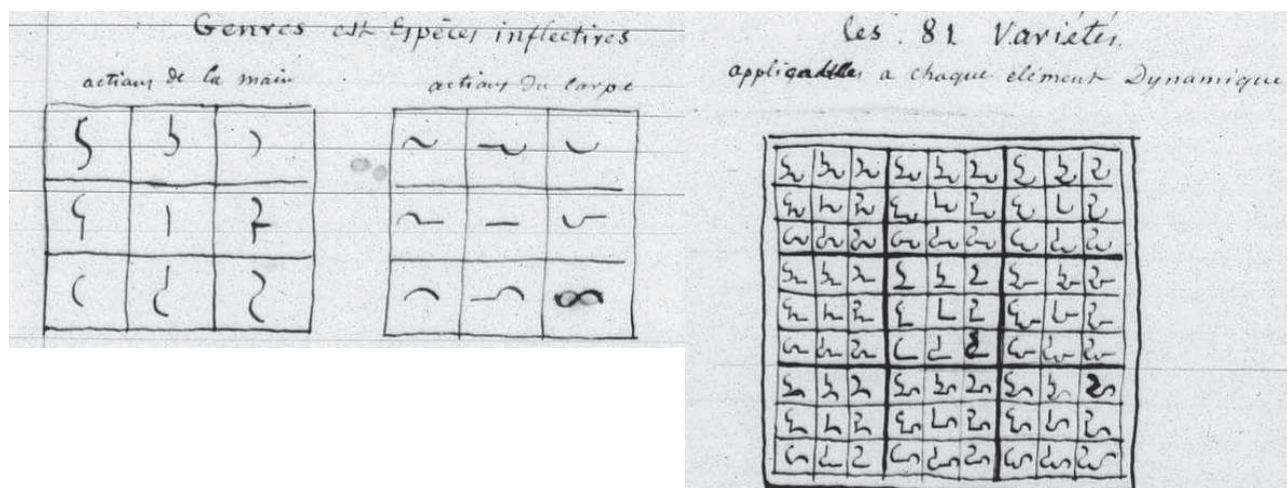 Genres est Espèces inflectives
actions de la main
actions du Carpe
les 81 Variétés
applicables a chaque élément Dynamique